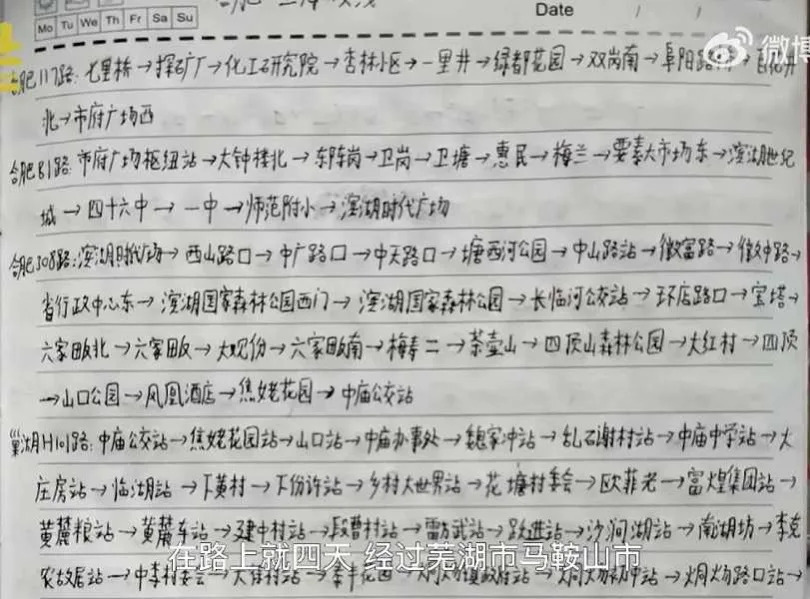 Mo Tu We Th Fr Sa Su
Date / /
微博
合肥117路: 七里桥→探矿厂→化工研究院→杏林小区→一里井→绿都花园→双岗南→阜阳路
北→市府广场西
合肥B1路: 市府广场枢纽站→大钟楼北→东陈岗→卫岗→卫塘→惠民→梅兰→要素大市场东→滨湖世纪
城→四十六中→一中→师范附小→滨湖时代广场
合肥308路:滨湖时代广场→西山路口→中广路口→中天路口→塘西河公园→中山路站→徽富路→徽中路→
省行政中心东→滨湖国家森林公园西门→滨湖国家森林公园→长临河公交站→环店路口→宝塔→
六家畈北→六家畈→大观份→六家畈南→梅寿二→茶壶山→四顶山森林公园→大红村→四顶
→山口公园→凤凰酒店→焦姥花园→中庙公交站
巢湖H101路: 中庙公交站→焦姥花园站→山口站→中庙办事处→魏家冲站→乱石谢村站→中庙中学站→大
庄房站→临湖站→下黄村→下份许站→乡村大世界站→花塘村委会→欧菲老→富煌集团站→
黄麓粮站→黄麓车站→建中村站→段曹村站→雷方武站→跃进站→沙涧湖站→南湖坊→李克
农故居站→中李村委会→
在路上就四天 经过芜湖市马鞍山市